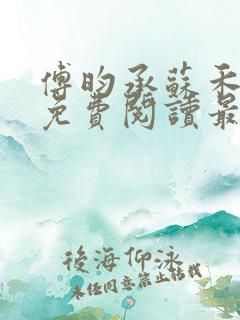 傅昀承蘇禾
免費閱讀最
後海仰泳
未經同意禁止轉載